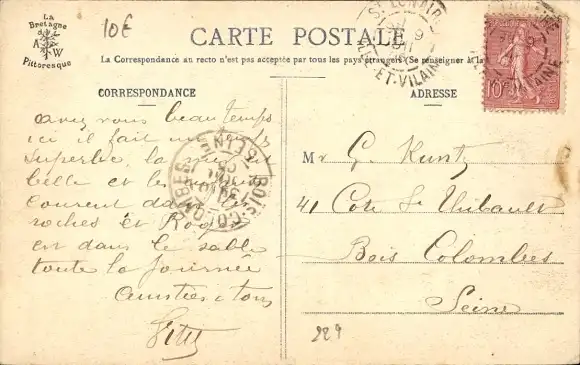 La
Bretagne
A W
Pittoresque
10€
CARTE POSTALE
La Correspondance au recto n'est pas acceptée par tous les pays étrangers (Se renseigner à la
CORRESPONDANCE
ADRESSE
avez vous beau temps
ici il fait un temps
superbe, la mer est
belle et les
courent dans les
roches et
est dans le sable
toute la journée
amitiés à tous
Mr G. Kuntz
41 Côte St Thibault
Bois Colombes
Seine
229
ST LUNAIRE
ILLE-ET-VILAINE
10c
BOIS-COLOMBES
SEINE